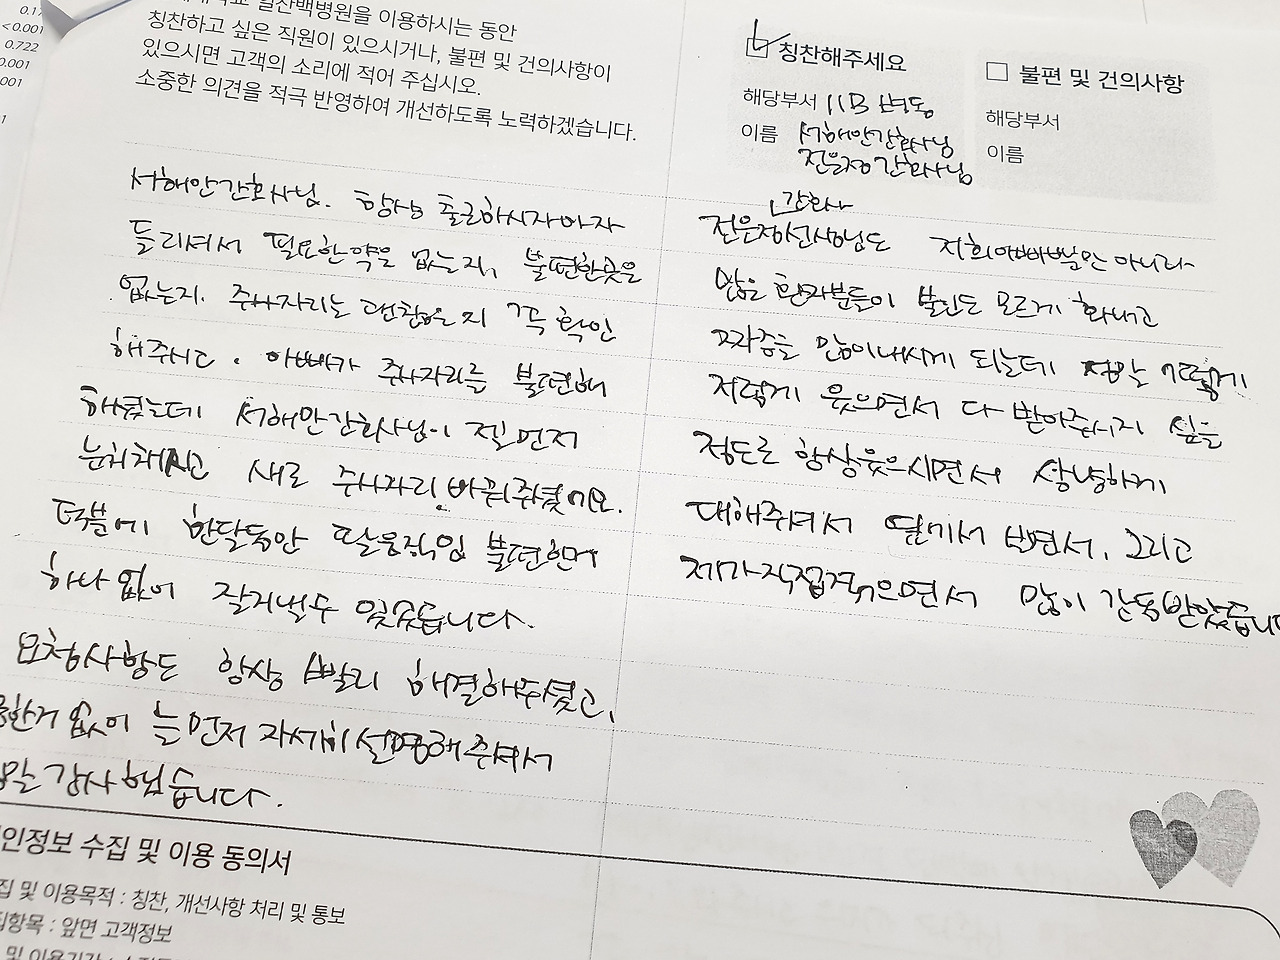 0.17
<0.001
0.722
0.001
001
일산백병원을 이용하시는 동안
칭찬하고 싶은 직원이 있으시거나, 불편 및 건의사항이
있으시면 고객의 소리에 적어 주십시오.
소중한 의견을 적극 반영하여 개선하도록 노력하겠습니다.
칭찬해주세요
해당부서 11B 병동
이름 서해안간호사님
전은정간호사님
불편 및 건의사항
해당부서
이름
서해안간호사님. 항상 출근하시자마자
들리셔서 필요한약은 없는지, 불편한곳은
없는지. 주사자리는 괜찮은지 꼭 확인
해주시고. 아빠가 주사자리를 불편해
하셨는데 서해안간호사님이 젤먼저
눈치채시고 새로 주사자리 바꿔주셨어요.
덕분에 한달동안 딸은 불편한게
하나없이 잘지낼수 있었습니다.
요청사항도 항상 빨리 해결해주셨고,
없이 늘먼저 자세히 설명해주셔서
정말 감사했습니다.
간호사
전은정선생님도 저희아빠뿐만 아니라
많은 환자분들이 본인도 모르게 화내고
짜증을 많이내시게 되는데 정말 어떻게
저렇게 웃으면서 다 받아주시지 싶을
정도로 항상웃으시면서 상냥하게
대해주셔서 옆에서 보면서, 그리고
제가직접겪으면서 많이 감동받았습니다
개인정보 수집 및 이용 동의서
수집 및 이용목적 : 칭찬, 개선사항 처리 및 통보
수집항목 : 앞면 고객정보